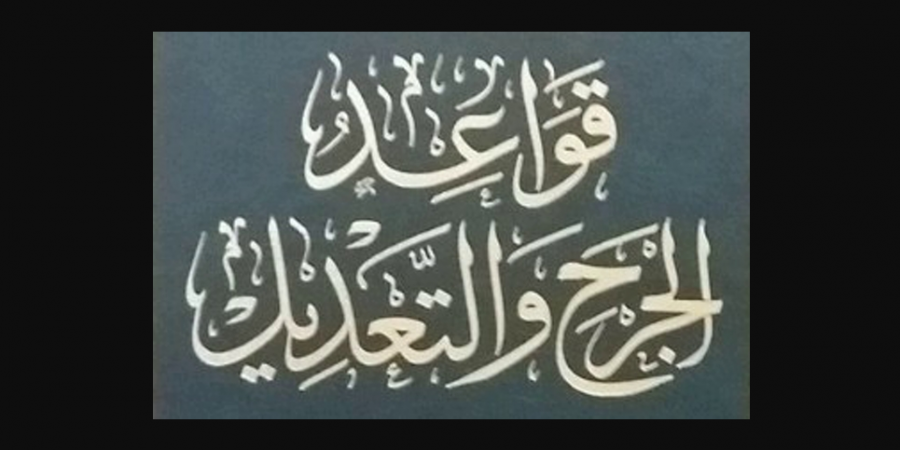 قَوَاعِدُ
الْجَرْحِ وَالتَّعْدِيلِ